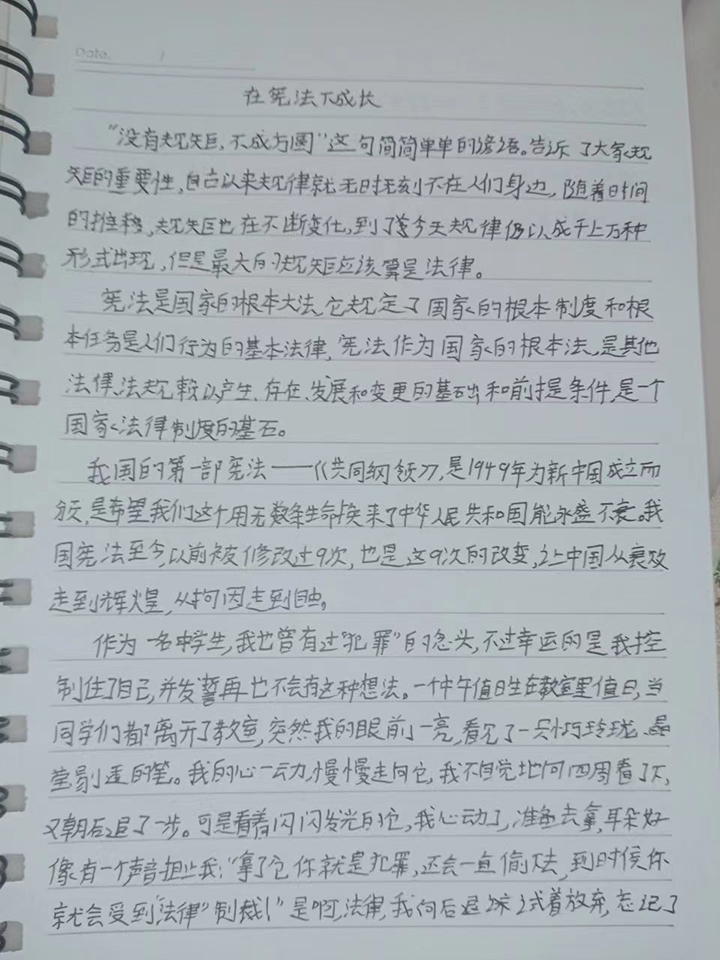 Date. /
在宪法下成长
"没有规矩,不成方圆"这句简简单单的谚语。告诉了大家规
矩的重要性,自古以来规律就无时无刻不在人们身边,随着时间
的推移,规矩也在不断变化,到了今天规律仍以成千上万种
形式出现,但是最大的规矩应该算是法律。
宪法是国家的根本大法,它规定了国家的根本制度和根
本任务是人们行为的基本法律,宪法作为国家的根本法,是其他
法律、法规赖以产生、存在、发展和变更的基础和前提条件,是一个
国家法律制度的基石。
我国的第一部宪法——《共同纲领》,是1949年为新中国成立而
颁,是希望我们这个用无数条生命换来了中华人民共和国能永盛不衰。我
国宪法至今以前被修改过9次,也是这9次的改变,让中国从衰败
走到辉煌,从走到
作为一名中学生,我也曾有过"犯罪"的念头,不过幸运的是我控
制住了自己,并发誓再也不会有这种想法。一个中午值日生在教室里值日,当
同学们都离开了教室,突然我的眼前一亮,看见了一只小巧玲珑、晶
莹剔透的笔。我的心一动,慢慢走向它,我不自觉地向四周看了下,
又朝后退了一步。可是看着闪闪发光的它,我心动了,准备去拿,耳朵好
像有一个声音阻止我:"拿了它你就是犯罪,还会一直偷下去,到时候你
就会受到"法律"制裁!"是啊,法律,我向后退试着放弃,忘记了